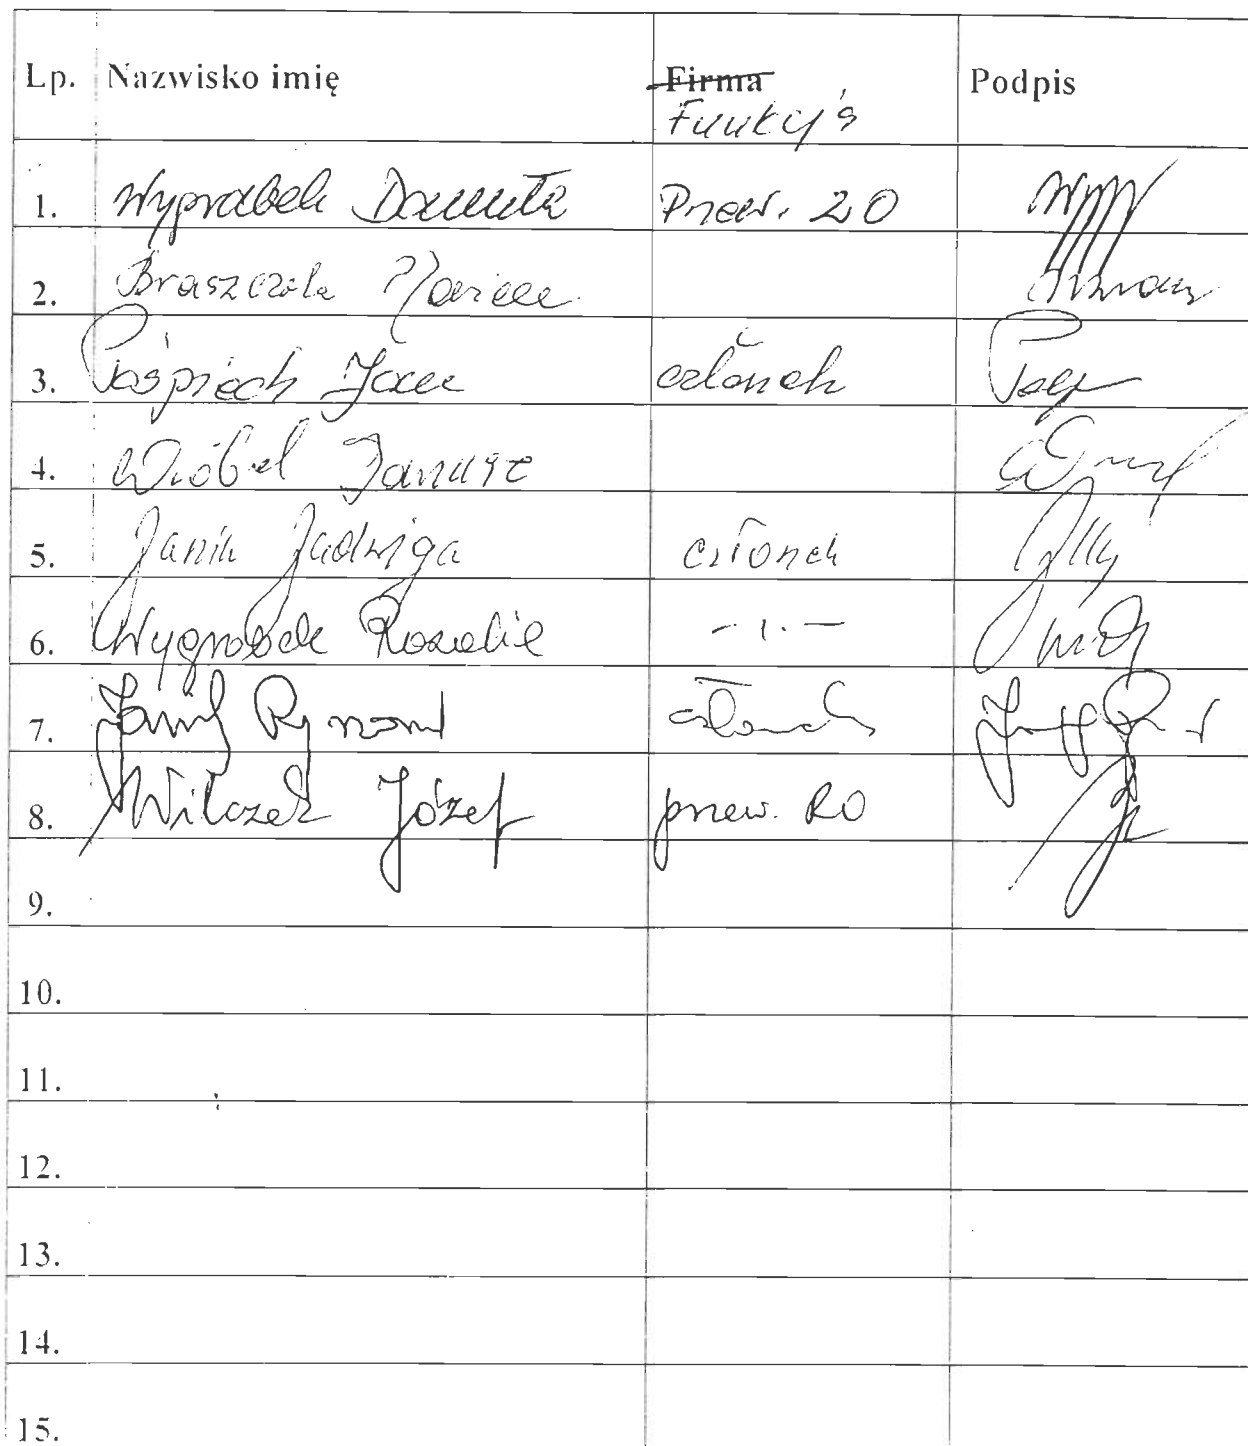 Lp. Nazwisko imię Firma Podpis
Funkcja
1. Wyprabek Danuta Przew. ZO
2. Braszczak Maria
3. Pośpiech Jacek członek
4. Wróbel Janusz
5. Janik Jadwiga członek
6. Wygrabek Rozalia -1.-
7. Janik Rymond członek
8. Wilczek Józef przew. RO
9.
10.
11.
12.
13.
14.
15.